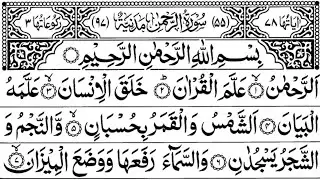 اٰيَاتُهَا ٧٨ (٥٥) سُوْرَةُ الرَّحْمٰنِ مَدَنِيَّةٌ (٩٧) رُكُوْعَاتُهَا ٣
بِسْمِ اللهِ الرَّحْمٰنِ الرَّحِيْمِ
اَلرَّحْمٰنُ ۙ﴿١﴾ عَلَّمَ الْقُرْاٰنَ ؕ﴿٢﴾ خَلَقَ الْاِنْسَانَ ۙ﴿٣﴾ عَلَّمَهُ
الْبَيَانَ ﴿٤﴾ اَلشَّمْسُ وَالْقَمَرُ بِحُسْبَانٍ ﴿٥﴾ وَّالنَّجْمُ وَ
الشَّجَرُ يَسْجُدٰنِ ﴿٦﴾ وَالسَّمَآءَ رَفَعَهَا وَوَضَعَ الْمِيْزَانَ ﴿٧﴾